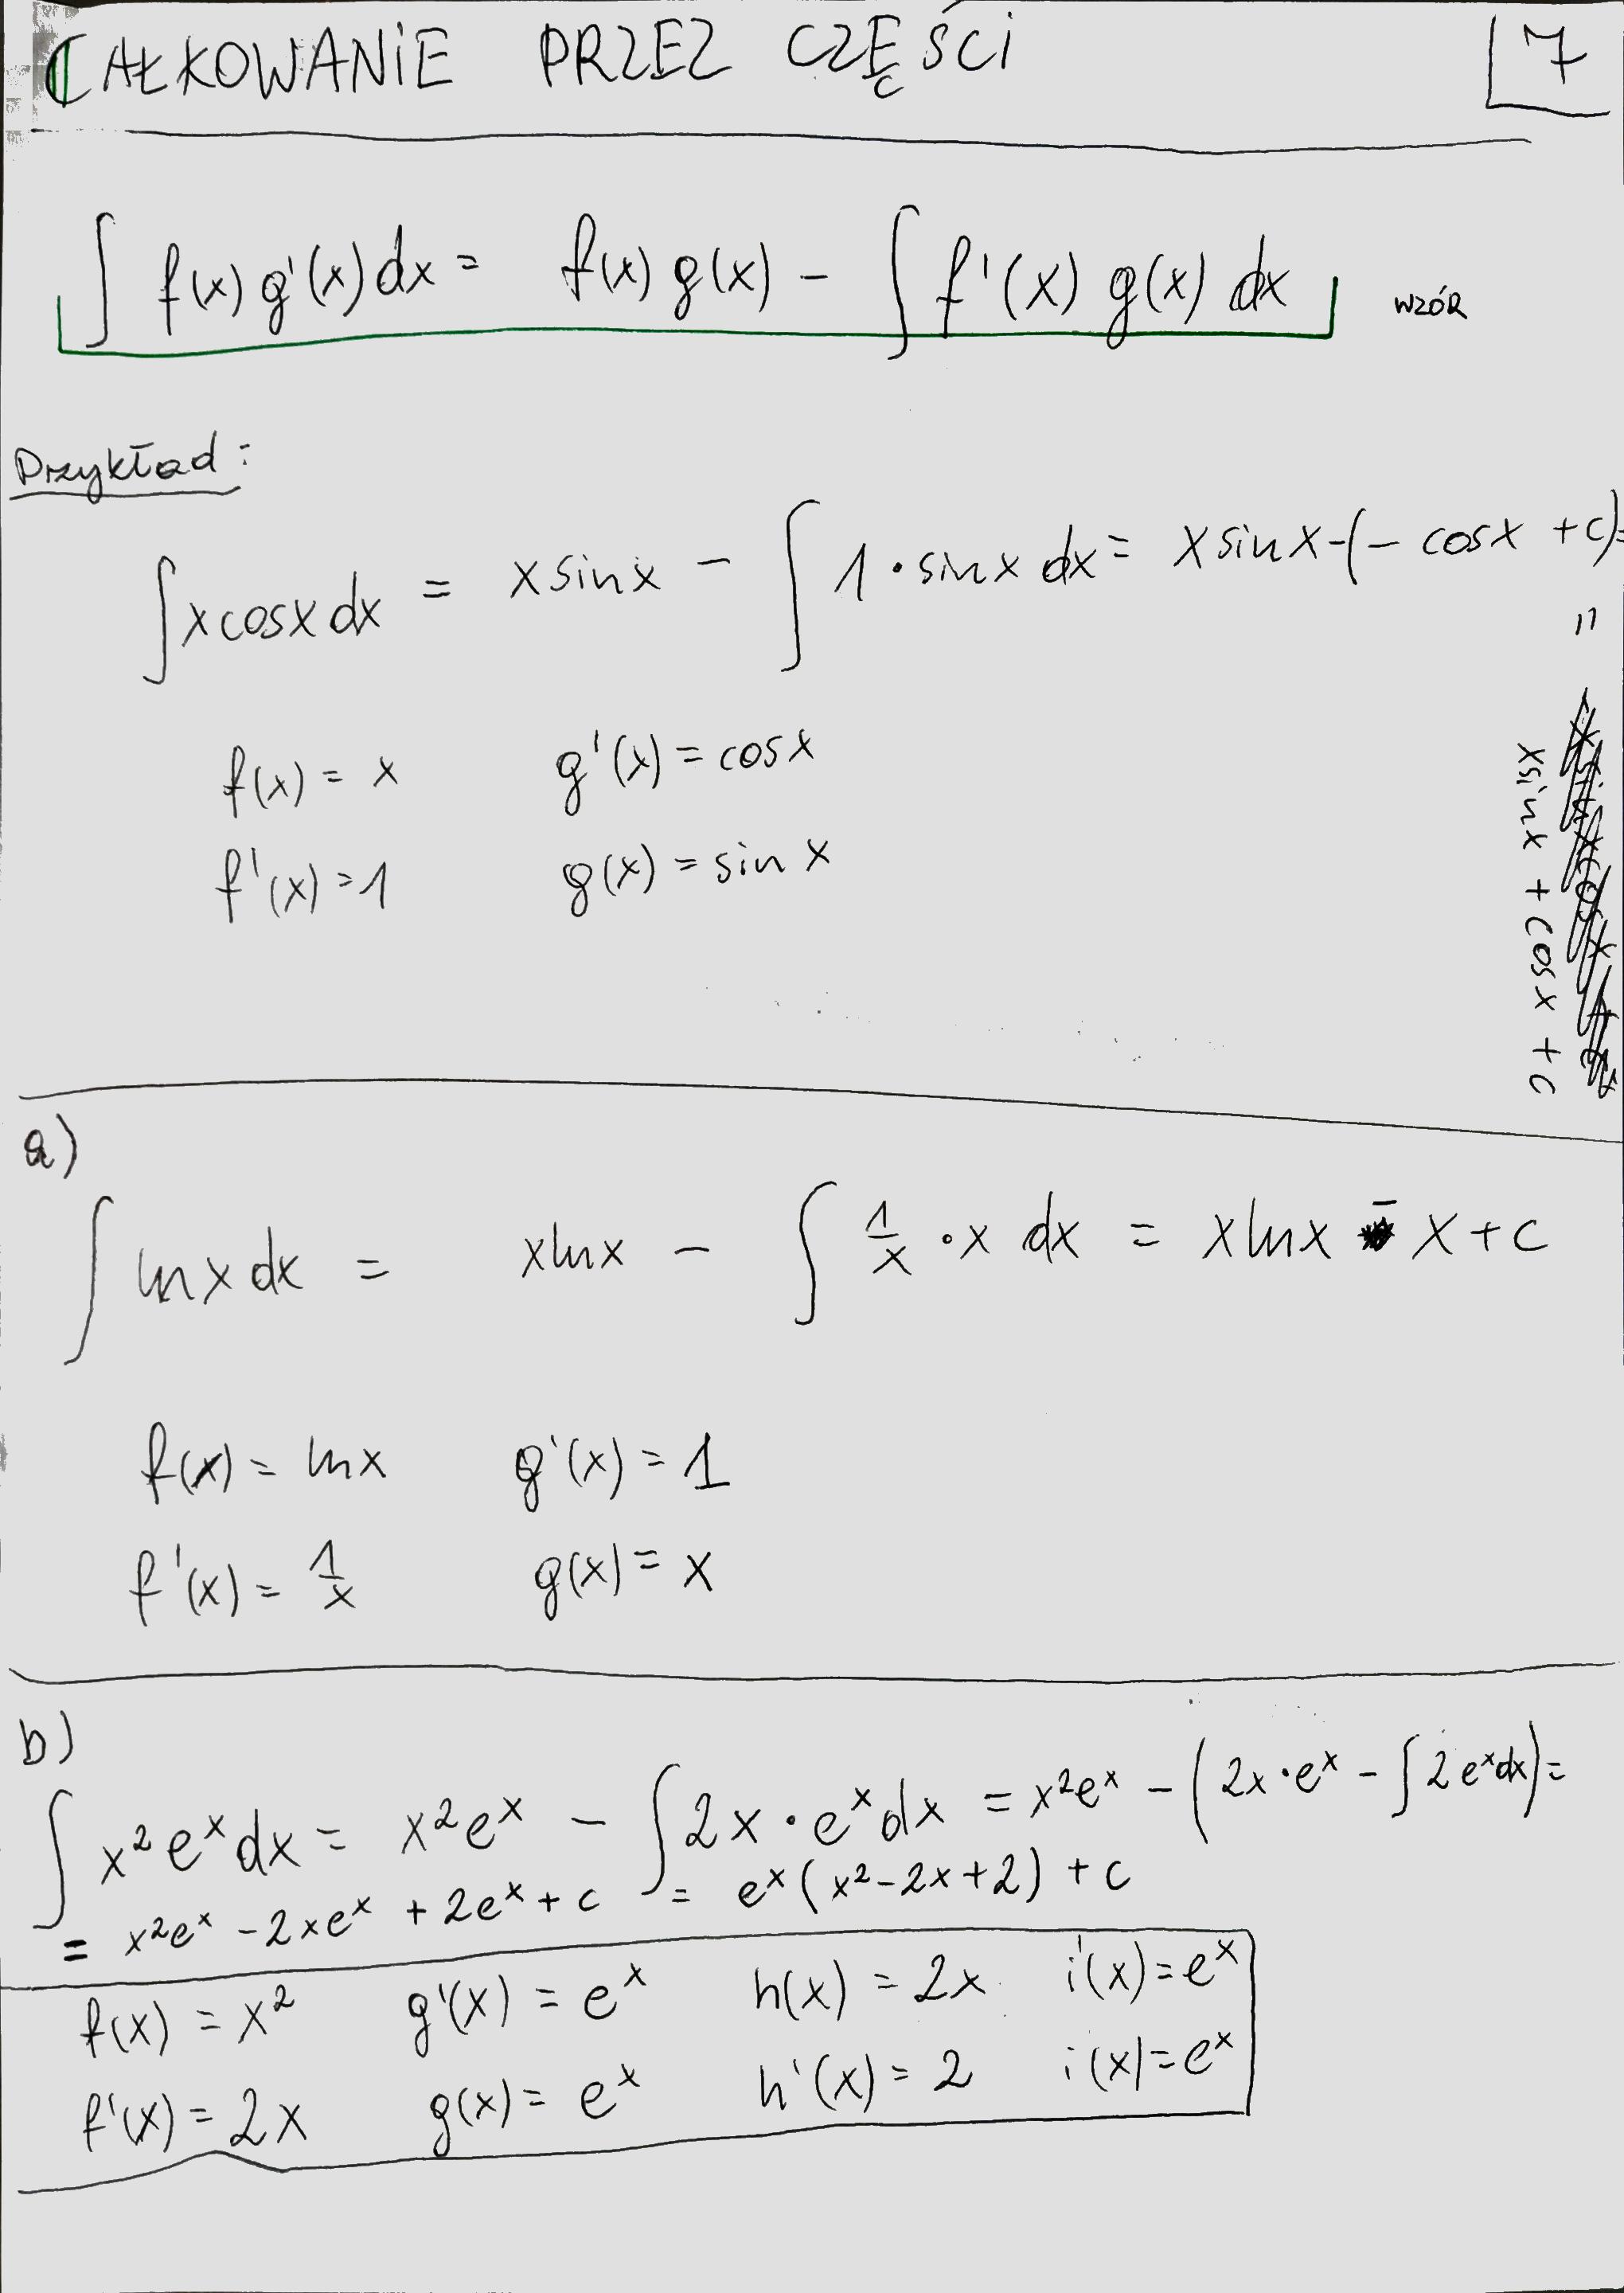 CAŁKOWANIE PRZEZ CZĘŚCI 7
∫ f(x) g'(x) dx = f(x) g(x) - ∫ f'(x) g(x) dx wzór
Przykład:
∫ x cosx dx = x sinx - ∫ 1 · sinx dx = x sinx - (- cosx + c) =
=
xsinx + cosx + c
f(x) = x g'(x) = cosx
f'(x) = 1 g(x) = sin x
a)
∫ lnx dx = xlnx - ∫ 1/x · x dx = xlnx - x + c
f(x) = lnx g'(x) = 1
f'(x) = 1/x g(x) = x
b)
∫ x²eˣdx = x²eˣ - ∫ 2x · eˣdx = x²eˣ - (2x · eˣ - ∫ 2eˣdx) =
= x²eˣ - 2xeˣ + 2eˣ + c = eˣ(x² - 2x + 2) + c
f(x) = x² g'(x) = eˣ h(x) = 2x i'(x) = eˣ
f'(x) = 2x g(x) = eˣ h'(x) = 2 i(x) = eˣ